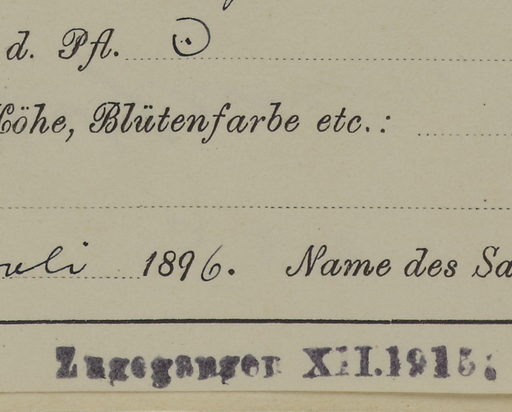 d. Pfl.
Höhe, Blütenfarbe etc.:
Juli 1896. Name des Sa
Zugegangen XII.1915.